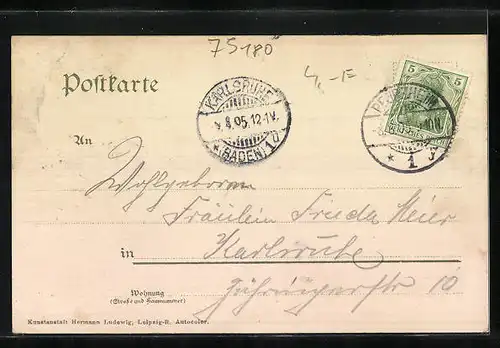 75180
4,-F
Postkarte
5 5
KARLSRUHE
4.05.12-1V.
* (BADEN) 1 d
PFORZHEIM
* 1 J
An
Wohlgeboren
Fräulein Frieda Meier
in Karlsruhe
Wohnung Zähringerstr 10
(Straße und Hausnummer)
Kunstanstalt Hermann Ludewig, Leipzig-R. Autocolor.